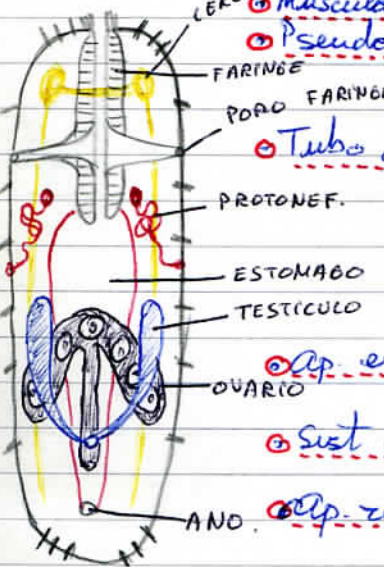 CER
Muscula
Pseudo
FARINGE
PORO FARINGE
Tubo
PROTONEF.
ESTOMAGO
TESTICULO
Ap. e
OVARIO
Sist
Ap. r
ANO.